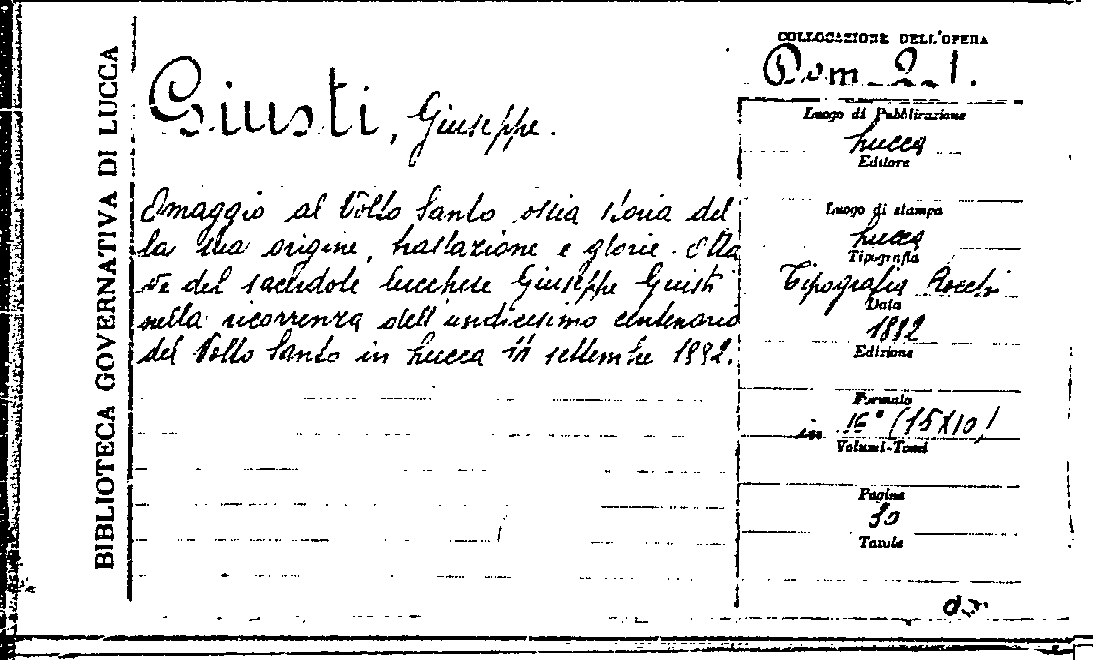 BIBLIOTECA GOVERNATIVA DI LUCCA
COLLOCAZIONE DELL'OPERA
Dom. 2. 1.
Giusti, Giuseppe.
Omaggio al Volto Santo ossia storia del
la sua origine, traslazione e glorie. Otta
ve del sacerdote lucchese Giuseppe Giusti
nella ricorrenza dell'undicesimo centenario
del Volto Santo in Lucca 14 settembre 1882.
Luogo di Pubblicazione
Lucca
Editore
Luogo di stampa
Lucca
Tipografia
Tipografia Rocchi
Data
1882
Edizione
Formato
in 16° (15X10)
Volumi-Tomi
Pagine
30
Tavole